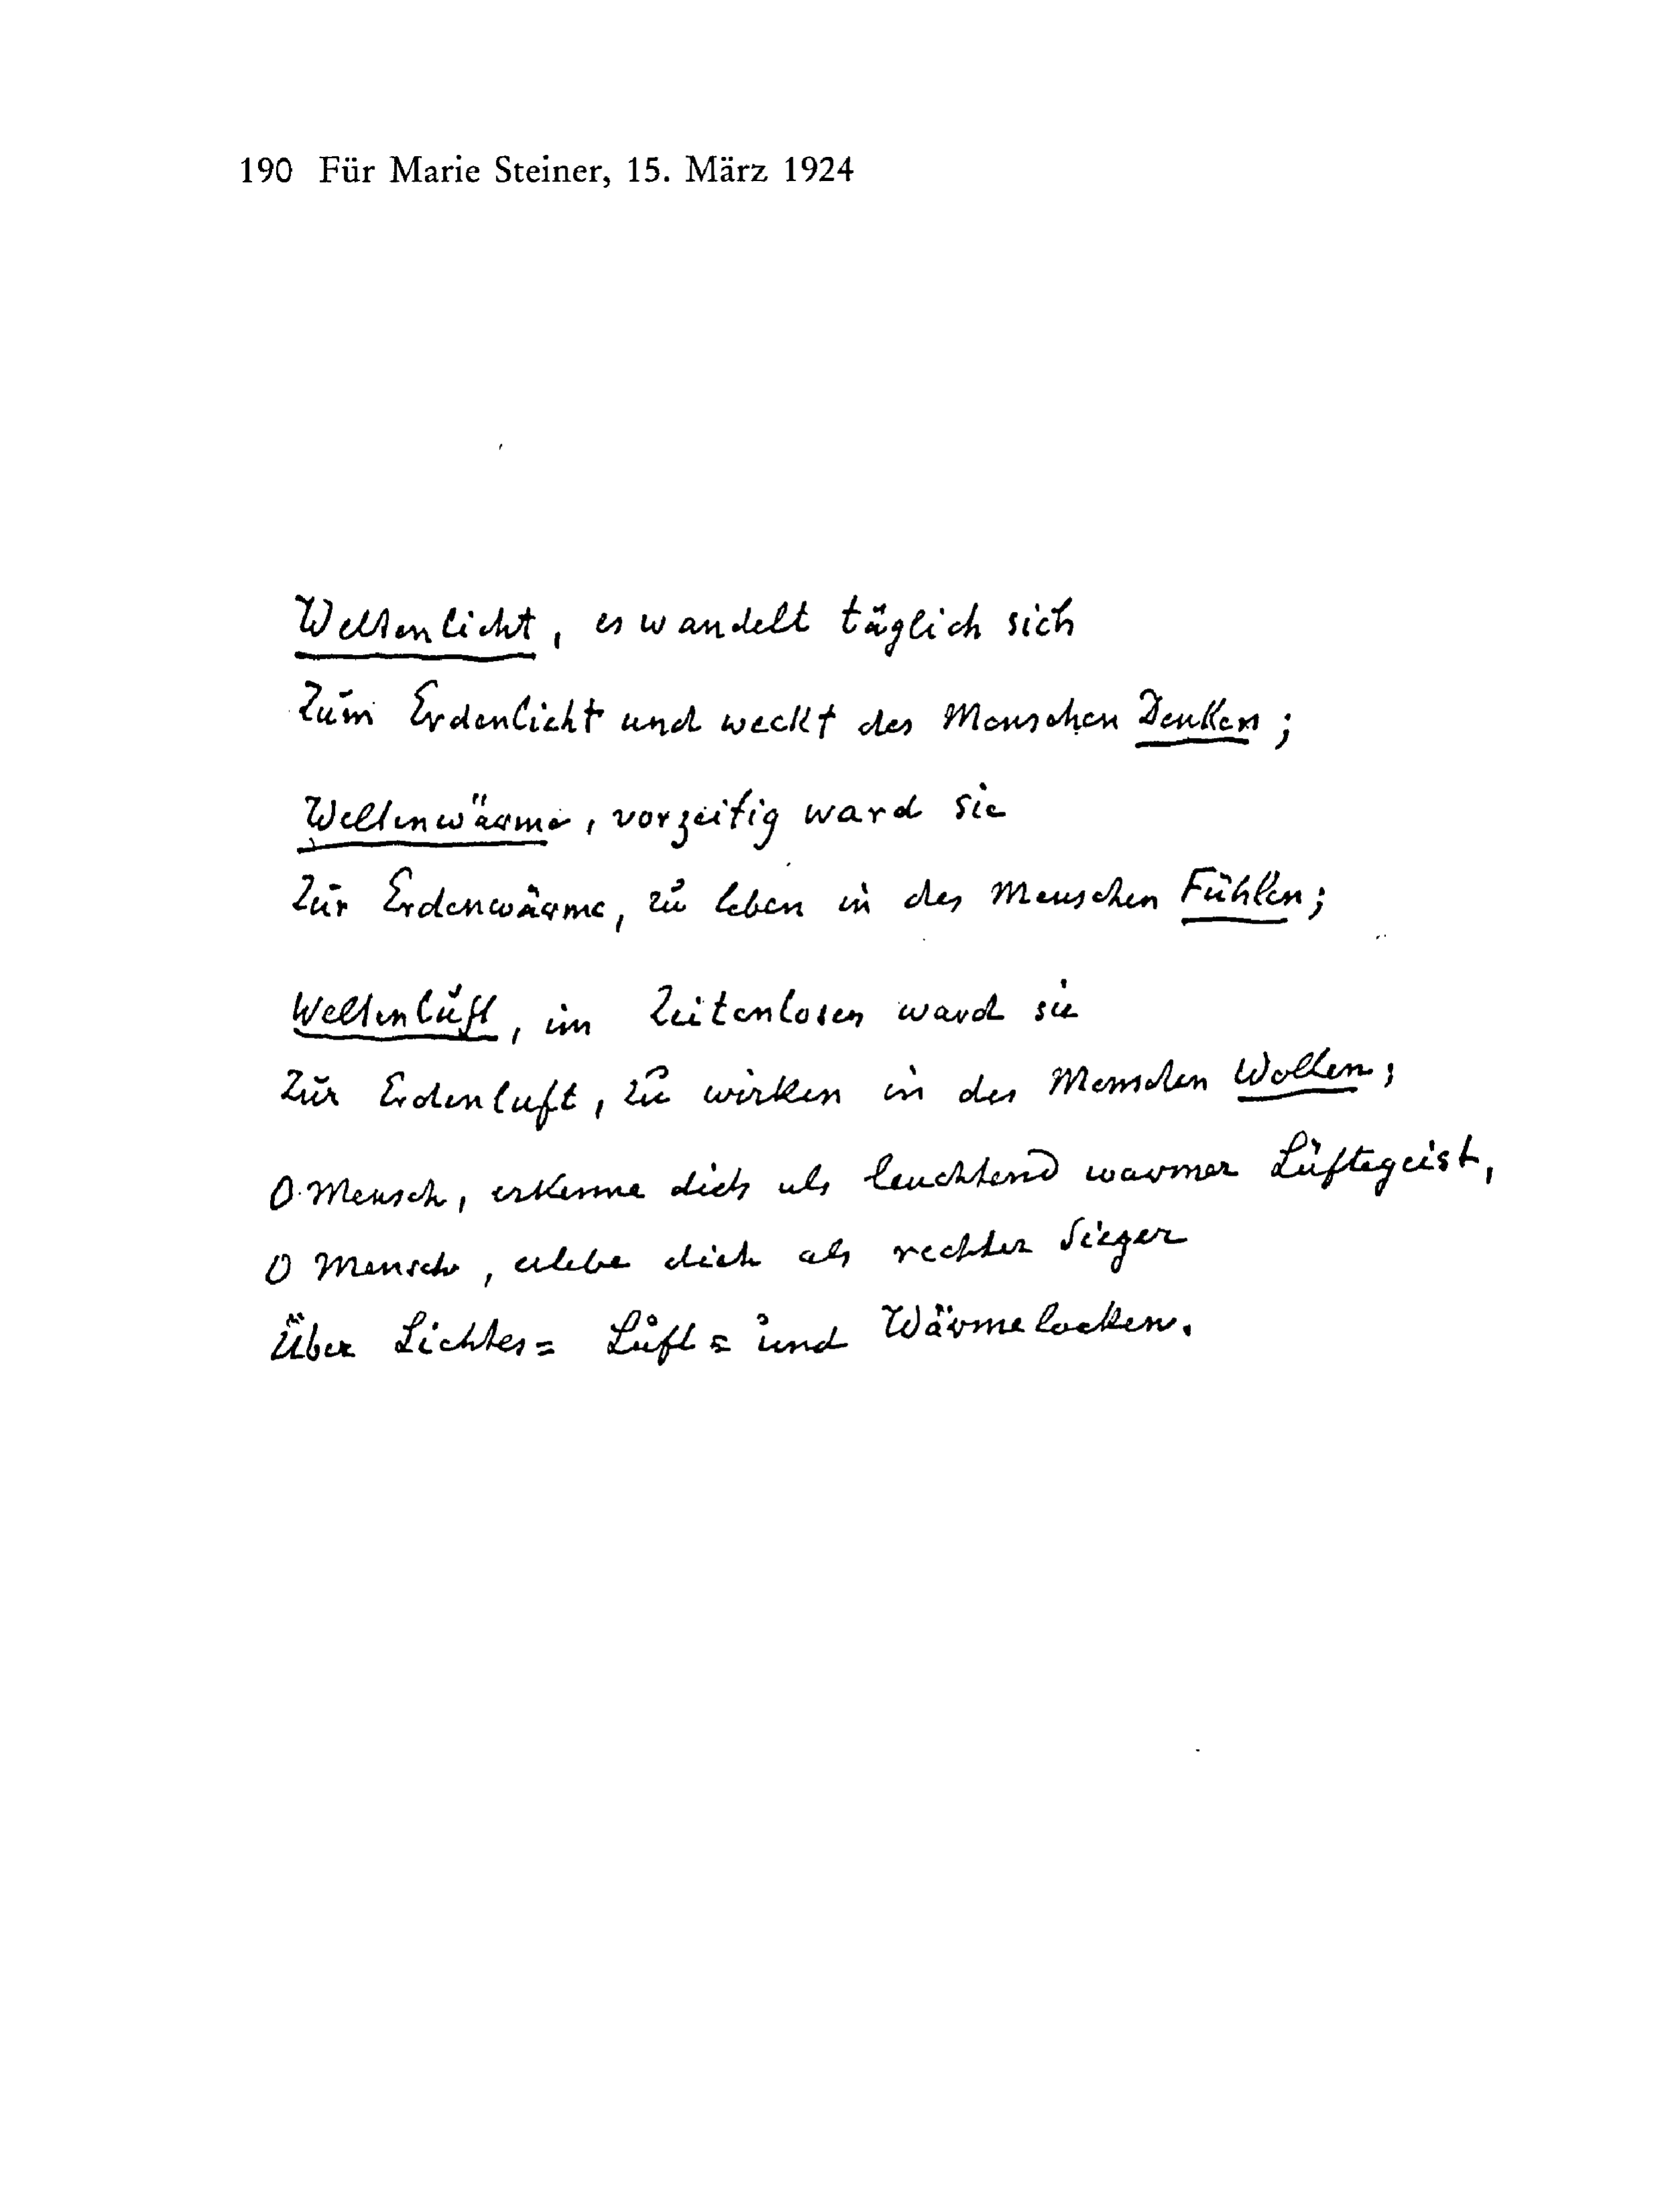 190 Für Marie Steiner, 15. März 1924
Weltenlicht, es wandelt täglich sich
Zum Erdenlicht und weckt des Menschen Denken;
Weltenwärme, vorzeitig ward sie
Zur Erdenwärme, zu leben in des Menschen Fühlen;
Weltenluft, im Zeitenlosen ward sie
Zur Erdenluft, zu wirken in des Menschen Wollen;
O Mensch, erkenne dich als leuchtend warmer Lüftegeist,
O Mensch, erlebe dich als rechter Sieger
Über Lichtes= Luft= und Wärmelocken.